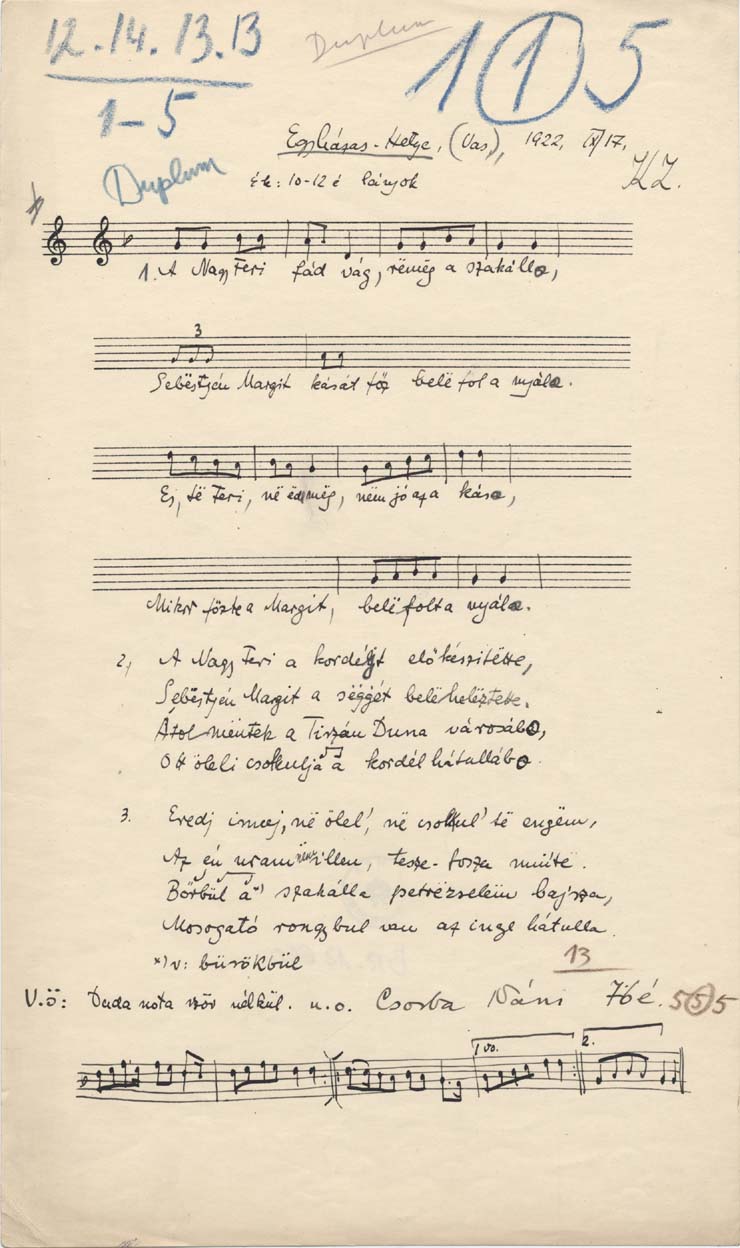 12.14.13.13
1-5
Duplum
Duplum
1 1 5
Egyházas-Hetye, (Vas), 1922, IX/17,
ék: 10-12 é lányok
KZ.
1. A Nagy Feri fád vág, rëmëg a szakálla,
3
Sebëstyén Margit kását főz belë fol a nyála.
Ej, të Feri, në ëdd mëg, nëm jó aza kása,
Mikor főzte a Margit, belë folta nyála.
2, A Nagy Feri a kordélyt előkészitëtte,
Sebëstyén Margit a sëggét belë helëztette.
Átol mëntek a Tiszán Duna városába,
Ott öleli csokulja a kordél hátullába.
3. Eredj innej, në ölel', në csokkul' të engëm,
Az én uram nëm illen, tesze-tosza müüte.
Bőrbül a *) szakálla petrëzselëm bajsza,
Mosogató rongybul van az inge hátulla.
*) v: bürökbül
13
V.ö: Duda nota szöv nélkül. u.o. Csorba Náni 76é. 5 5 5
1 vo.
2.